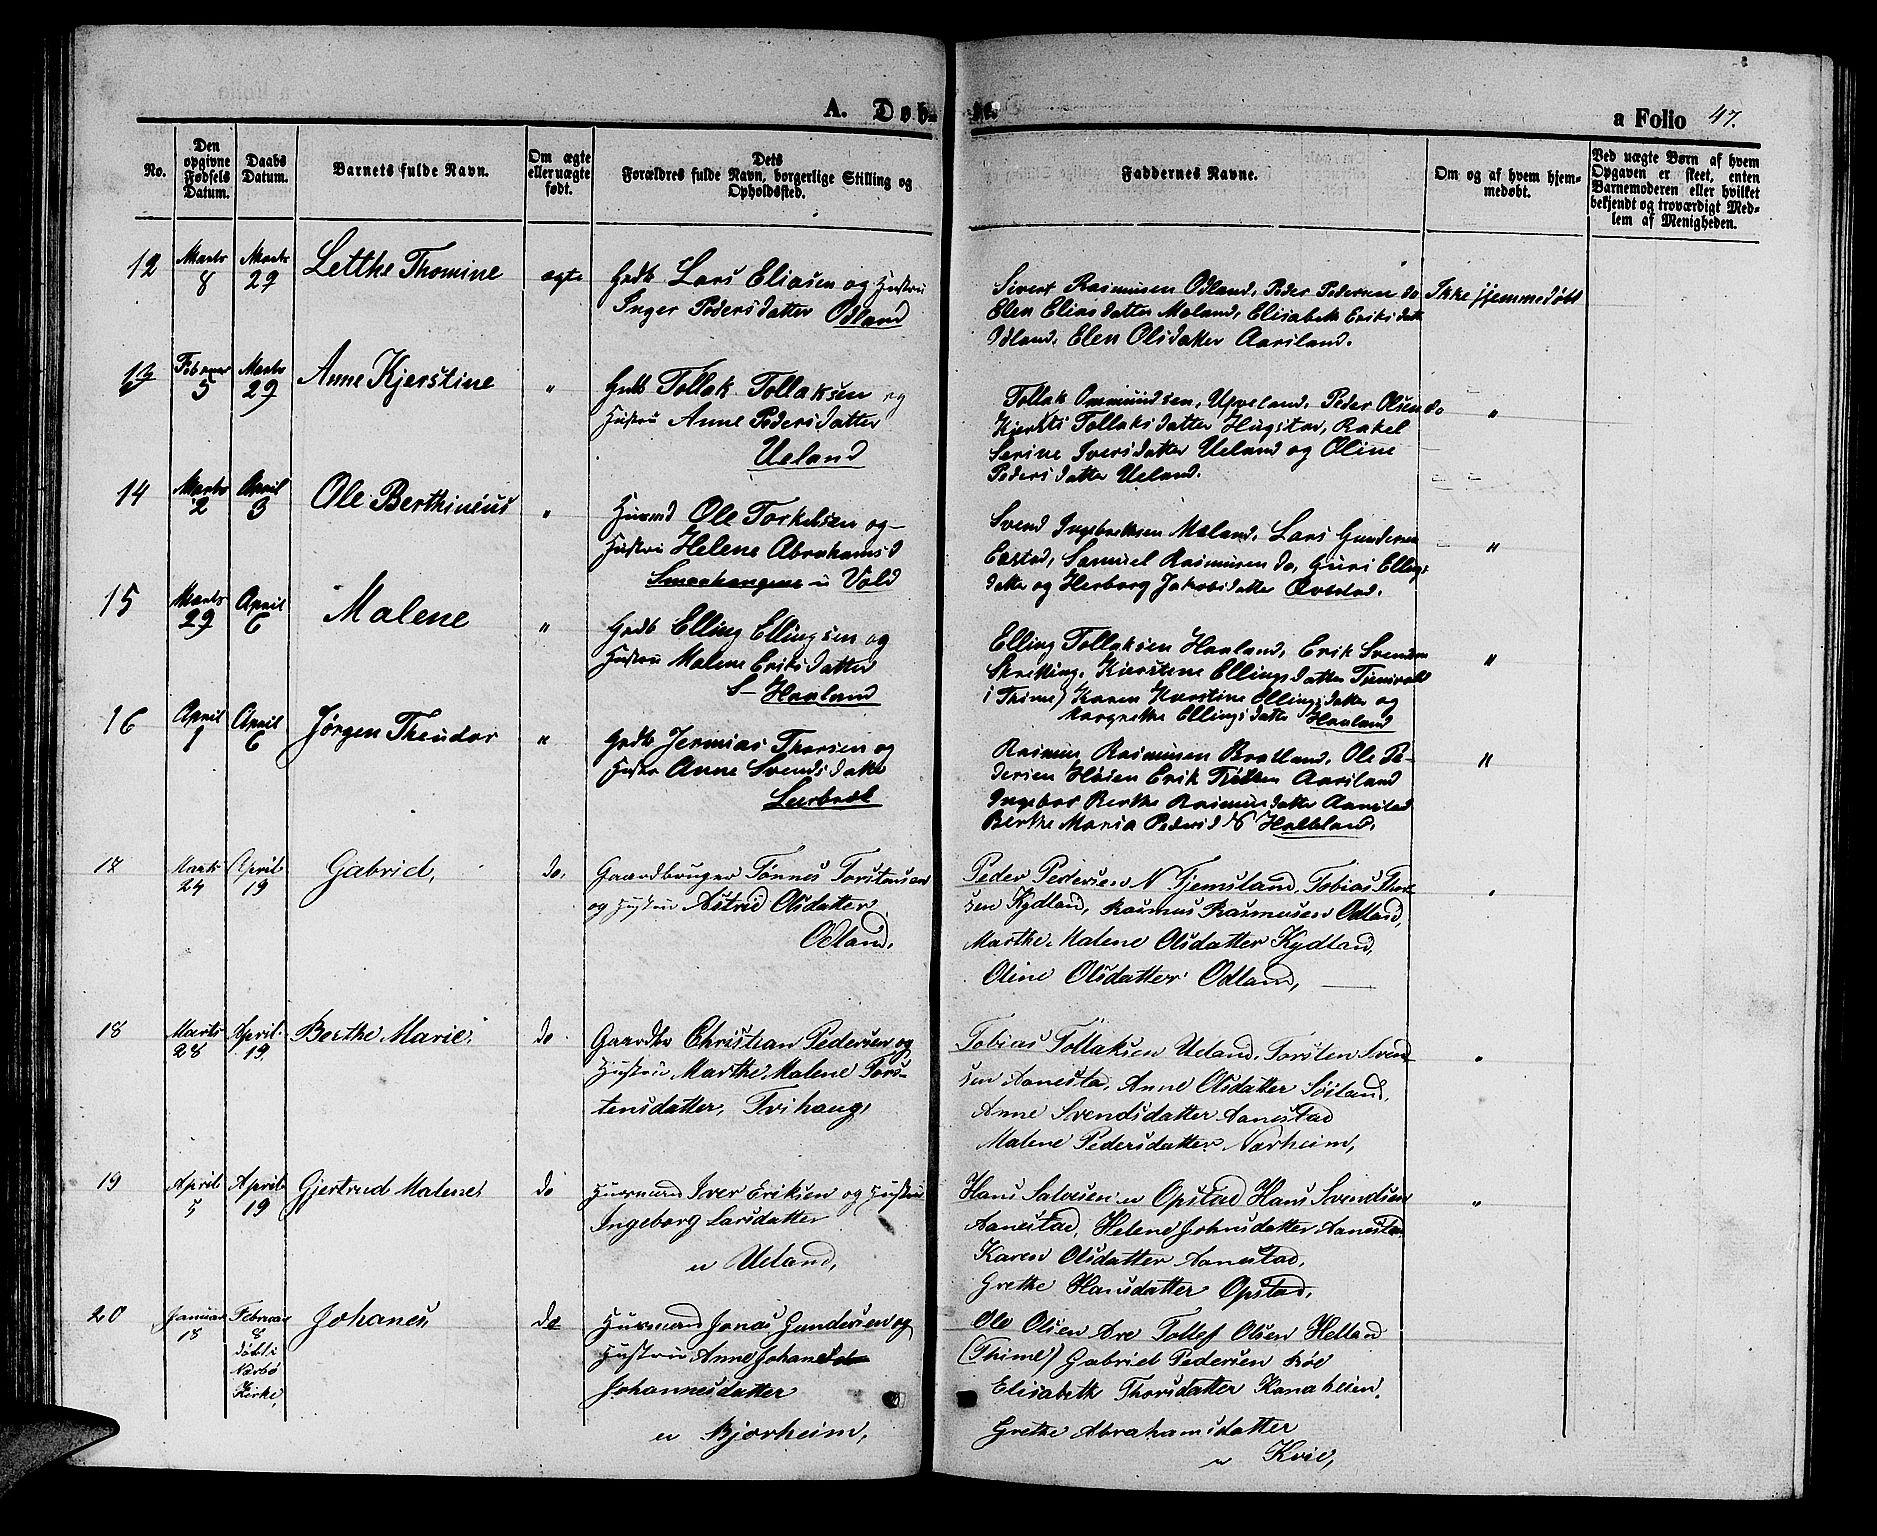 A. Døbte.
a Folio 47.
No.
Den opgivne Fødsels Datum.
Daabs Datum.
Barnets fulde Navn.
Om ægte eller uægte født.
Dets Forældres fulde Navn, borgerlige Stilling og Opholdssted.
Faddernes Navne.
Om og af hvem hjemmedøbt.
Ved uægte Børn af hvem Opgaven er skeet, enten Barnemoderen eller hvilket bekjendt og troværdigt Medlem af Menigheden.
12 Marts 8 Marts 29 Letthe Thomine ægte
Grdb Lars Eliasen og Hustru
Inger Pedersdatter Odland
Sivert Rasmusen Odland, Peder Pedersen do
Elen Eliasdatter Moland, Elisabeth Eriksdatt
Odland, Elen Olsdatter Aarsland.
Ikke hjemmedøbt
13 Februar 5 Marts 29 Anne Kjerstine "
Grdb Tollak Tollaksen og
Hustru Anne Pedersdatter
Ueland
Tollak Ommundsen, Ueland, Peder Olsen do
Kjersti Tollaksdatter Hugstad, Rakel
Serine Iversdatter Ueland og Oline
Pedersdatter Ueland.
"
14 Marts 2 April 3 Ole Berthineus "
Husmd Ole Torkelsen og
Hustru Helene Abrahamsd
Smaahaugene u Vold
Svend Ingebretsen Moland, Lars Gundersen
Samuel Rasmusen do, Guri Ellings
datter og Herborg Jakobsdatter
"
15 Marts 29 April 6 Malene "
Grdb Elling Ellingsen og
Hustru Malene Eriksdatter
S- Haaland
Elling Tollaksen Haaland, Erik Svendsen
Skretting, Kjerstene Ellingsdatter
i Thime) Karen Karstine Ellingsdatter og
Margrethe Ellingsdatter Haaland
"
16 April 1 April 6 Jørgen Theodor "
Grdb Jermias Thorsen og
Hustru Anne Svendsdatter
Leerbræk
Rasmus Rasmusen Bratland, Ole Pe-
dersen Høien Erik Aarsland
Ingebor Berthe Rasmusdatter Aanestad
Berthe Maria Pedersd N Haaland.
"
17 Marts 24 April 19 Gabriel, do.
Gaardbruger Tønnes Torstensen
og Hustru Astrid Olsdatter
Odland.
Peder Pedersen N Tjemsland, Tobias Thor-
sen Kydland, Rasmus Rasmusen Odland,
Marthe Malene Olsdatter Kydland,
Oline Olsdatter Odland,
"
18 Marts 28 April 19 Berthe Marie, do
Gaardbr Christian Pedersen og
Hustru Marthe Malene Tors-
tensdatter, Trihaug,
Tobias Tollaksen Ueland, Torsten Svend-
sen Aanesta, Anne Olsdatter Søiland,
Anne Svendsdatter Aanestad
Malene Pedersdatter Narheim,
"
19 April 5 April 19 Gjertrud Malene, do
Husmand Iver Eriksen og Hustru
Ingeborg Larsdatter
u Ueland,
Hans Salvesen u Opstad Hans Svendsen
Aanestad, Helene Johnsdatter Aanestad
Karen Olsdatter Aanestad,
Grethe Hansdatter Opstad,
"
20 Januar 18 Februar 8 døbt i Nærbø Kirke, Johanes do
Husmand Jonas Gundersen og
Hustru Anne
Johannesdatter
u Bjorheim,
Ole Olsen Are Tollef Olsen Helland
(Thime) Gabriel Pedersen Røe
Elisabeth Thorsdatter Kanahlein,
Grethe Abrahamsdatter
u Kvie,